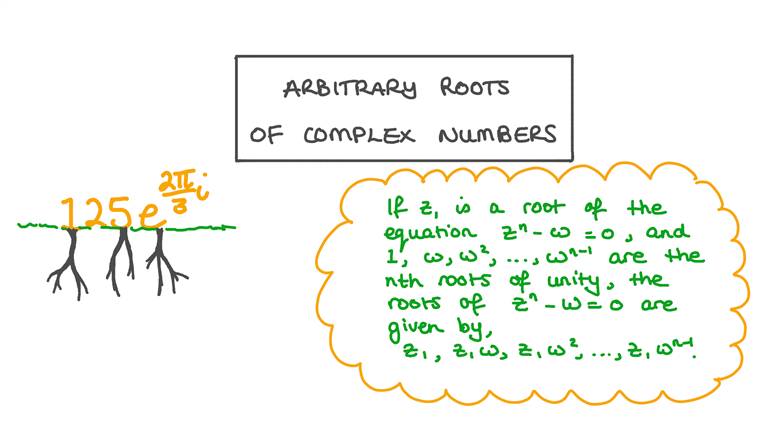 ARBITRARY ROOTS
OF COMPLEX NUMBERS
125e^{2π/3 i}
If z₁ is a root of the
equation zⁿ - ω = 0, and
1, ω, ω², ..., ωⁿ⁻¹ are the
nth roots of unity, the
roots of zⁿ - ω = 0 are
given by,
z₁, z₁ω, z₁ω², ..., z₁ωⁿ⁻¹.